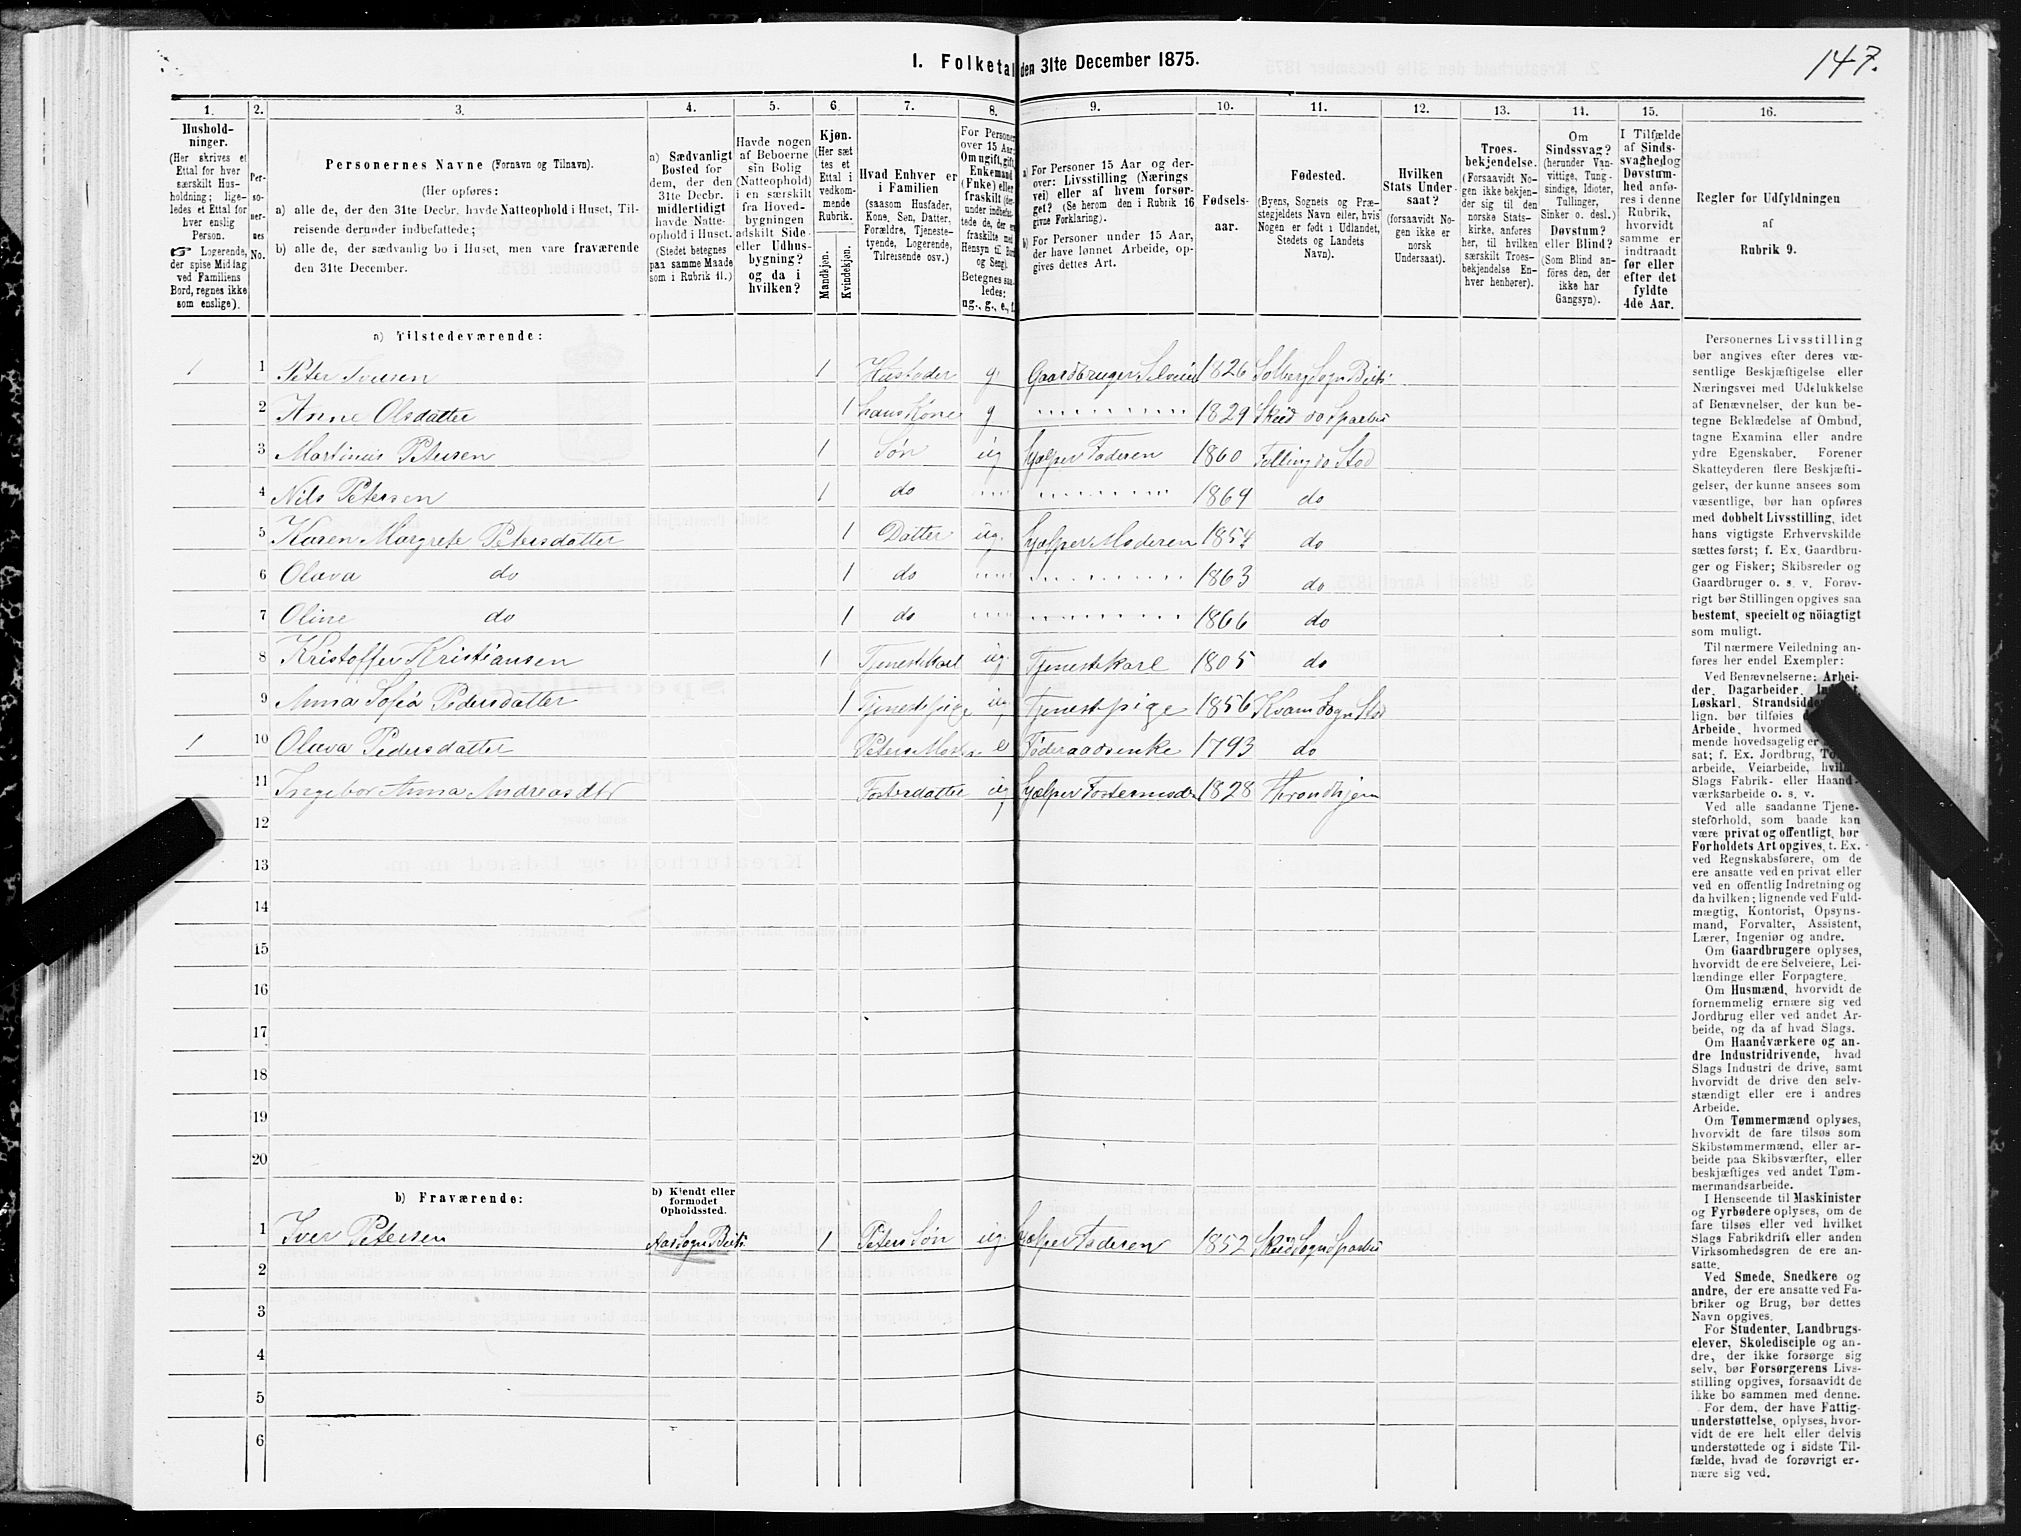 147.
1. Folketal den 31te December 1875.
1. 2. 3. 4. 5. 6. 7. 8. 9. 10. 11. 12. 13. 14. 15. 16.
Hushold-
ninger.
(Her skrives et
Ettal for hver
særskilt Hus-
holdning; lige-
ledes et Ettal for
hver enslig
Person.
☞ Logerende,
der spise Middag
ved Familiens
Bord, regnes ikke
som enslige).
Per-
so-
ner-
nes
No.
Personernes Navne (Fornavn og Tilnavn).
(Her opføres:
a) alle de, der den 31te Decbr. havde Natteophold i Huset, Til-
reisende derunder indbefattede;
b) alle de, der sædvanlig bo i Huset, men vare fraværende
den 31te December.
a) Sædvanligt
Bosted for
dem, der den
31te Decbr.
midlertidigt
havde Natte-
ophold i Huset.
(Stedet betegnes
paa samme Maade
som i Rubrik 11.)
Havde nogen
af Beboerne
sin Bolig
(Natteophold)
i en særskilt
fra Hoved-
bygningen
adskilt Side-
eller Udhus-
bygning?
og da i
hvilken?
Kjøn.
(Her sæt-
tes et
Ettal i
vedkom-
mende
Rubrik.
Mandkjøn.
Kvindekjøn.
Hvad Enhver er
i Familien
(saasom Husfader,
Kone, Søn, Datter,
Forældre, Tjeneste-
tyende, Logerende,
Tilreisende osv.)
For Personer
over 15 Aar:
Om ugift, gift,
Enkemand
(Enke) eller
fraskilt (der-
under indbefat-
tede de, der ere
fraskilte med
Hensyn til Bord
og Seng).
Betegnes saa-
ledes:
ug., g., e., f.
a) For Personer 15 Aar og der-
over: Livsstilling (Nærings-
vei) eller af hvem forsør-
get? (Se herom den i Rubrik 16
givne Forklaring).
b) For Personer under 15 Aar,
der have lønnet Arbeide, op-
gives dettes Art.
Fødsels-
aar.
Fødested.
(Byens, Sognets og Præ-
stegjeldets Navn eller, hvis
Nogen er født i Udlandet,
Stedets og Landets
Navn).
Hvilken
Stats Under-
saat?
(forsaavidt No-
gen ikke er
norsk
Undersaat).
Troes-
bekjendelse.
(Forsaavidt No-
gen ikke bekjen-
der sig til den
norske Stats-
kirke, anføres
her, til hvilken
særskilt Troes-
bekjendelse En-
hver henhører).
Om
Sindssvag?
(herunder Van-
vittige, Tung-
sindige, Idioter,
Tullinger,
Sinker o. desl.)
Døvstum?
eller Blind?
(Som Blind an-
føres den, der
ikke har
Gangsyn).
I Tilfælde
af Sinds-
svaghed og
Døvstum-
hed anfø-
res i denne
Rubrik,
hvorvidt
samme er
indtraadt
før eller
efter det
fyldte
4de Aar.
Regler for Udfyldningen
af
Rubrik 9.
a) Tilstedeværende:
1 1 Peter Iversen 1 Husfader g. Gaardbruger Selveier 1826 Solberg Sogn Beits
2 Anne Olsdatter 1 hans Kone g " 1829 Skeid do Sparbu
3 Martinus Petersen 1 Søn ug hjælper Faderen 1860 Følling do Stod
4 Nils Petersen 1 do " " 1869 do
5 Karen Margrete Petersdatter 1 Datter ug. hjælper Moderen 1854 do
6 Olava do 1 do " " 1863 do
7 Oline do 1 do " " 1866 do
8 Kristoffer Kristiansen 1 Tjenestekarl ug. Tjenestekarl 1805 do
9 Anna Sofia Pedersdatter 1 Tjenestpige ug. Tjenestpige 1856 Kvam Sogn Stod
1 10 Olava Pedersdatter Peters Moder e Føderaadsenke 1793 do
11 Ingebor Anna Andreasdtr Fosterdatter ug hjælper Fostermoder 1828 Throndhjem
12
13
14
15
16
17
18
19
20
b) Fraværende:
b) Kjendt eller
formodet
Opholdssted.
1 Iver Petersen Aas Sogn Beits. 1 Peters Søn ug. hjælper Faderen 1852 Skeid Sogn Sparbu
2
3
4
5
6
Personernes Livsstilling
bør angives efter deres væ-
sentlige Beskjæftigelse eller
Næringsvei med Udelukkelse
af Benævnelser, der kun be-
tegne Beklædelse af Ombud,
tagne Examina eller andre
ydre Egenskaber. Forener
Skatteyderen flere Beskjæfti-
gelser, der kunne ansees som
væsentlige, bør han opføres
med dobbelt Livsstilling, idet
hans vigtigste Erhvervskilde
sættes først; f. Ex. Gaardbru-
ger og Fisker; Skibsreder og
Gaardbruger o. s. v. Forøv-
rigt bør Stillingen opgives saa
bestemt, specielt og nöiagtigt
som muligt.
Til nærmere Veiledning an-
føres her endel Exempler:
Ved Benævnelserne: Arbei-
der, Dagarbeider,
Løskarl, Strandsidder
lign. bør tilføies
Arbeide, hvormed
mende hovedsagelig er
sat; f. Ex. Jordbrug,
arbeide, Veiarbeide,
Slags Fabrik- eller Haand-
værksarbeide o. s. v.
Ved alle saadanne Tjene-
steforhold, som baade kan
være privat og offentligt, bør
Forholdets Art opgives, t. Ex.
ved Regnskabsførere, om de
ere ansatte ved en privat eller
ved en offentlig Indretning og
da hvilken; lignende ved Fuld-
mægtig, Kontorist, Opsyns-
mand, Forvalter, Assistent,
Lærer, Ingeniør og andre.
Om Gaardbrugere oplyses,
hvorvidt de ere Selveiere, Lei-
lændinge eller Forpagtere.
Om Husmænd, hvorvidt de
fornemmelig ernære sig ved
Jordbrug eller ved andet Ar-
beide, og da af hvad Slags.
Om Haandværkere og an-
dre Industridrivende, hvad
Slags Industri de drive, samt
hvorvidt de drive den selv-
stændigt eller ere i andres
Arbeide.
Om Tømmermænd oplyses,
hvorvidt de fare tilsøs som
Skibstømmermænd, eller ar-
beide paa Skibsværfter, eller
beskjæftiges ved andet Tøm-
mermandsarbeide.
I Henseende til Maskinister
og Fyrbødere oplyses, om de
fare tilsøs eller ved hvilket
Slags Fabrikdrift eller anden
Virksomhedsgren de ere an-
satte.
Ved Smede, Snedkere og
andre, der ere ansatte ved Fa-
briker og Brug, bør dettes
Navn opgives.
For Studenter, Landbrugs-
elever, Skoledisciple og an-
dre, der ikke forsørge sig
selv, bør Forsørgerens Livs-
stilling opgives, forsaavidt de
ikke bo sammen med denne.
For dem, der have Fattig-
understøttelse, oplyses, hvor-
vidt de ere helt eller delvis
understøttede og i sidste Til-
fælde, hvad de forøvrigt er-
nære sig ved.